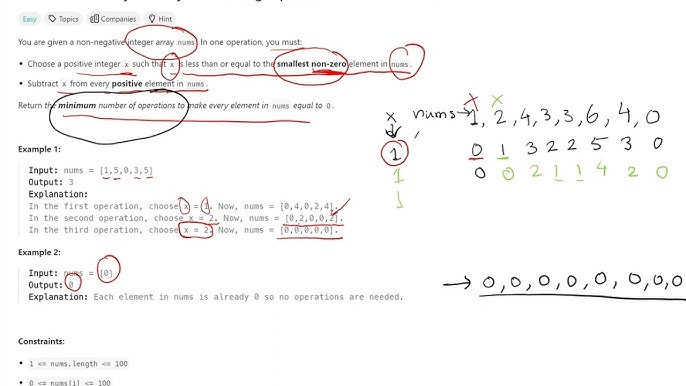 Easy Topics Companies Hint
You are given a non-negative integer array nums. In one operation, you must:
• Choose a positive integer x such that x is less than or equal to the smallest non-zero element in nums.
• Subtract x from every positive element in nums.
Return the minimum number of operations to make every element in nums equal to 0.
x nums → 1, 2, 4, 3, 3, 6, 4, 0
Example 1:
1 , 0 1 3 2 2 5 3 0
Input: nums = [1,5,0,3,5]
1 0 0 2 1 1 4 2 0
Output: 3
1
Explanation:
In the first operation, choose x = 1. Now, nums = [0,4,0,2,4].
In the second operation, choose x = 2. Now, nums = [0,2,0,0,2].
In the third operation, choose x = 2. Now, nums = [0,0,0,0,0].
Example 2:
Input: nums = [0]
→ 0, 0, 0, 0, 0, 0, 0, 0
Output: 0
Explanation: Each element in nums is already 0 so no operations are needed.
Constraints:
• 1 <= nums.length <= 100
• 0 <= nums[i] <= 100